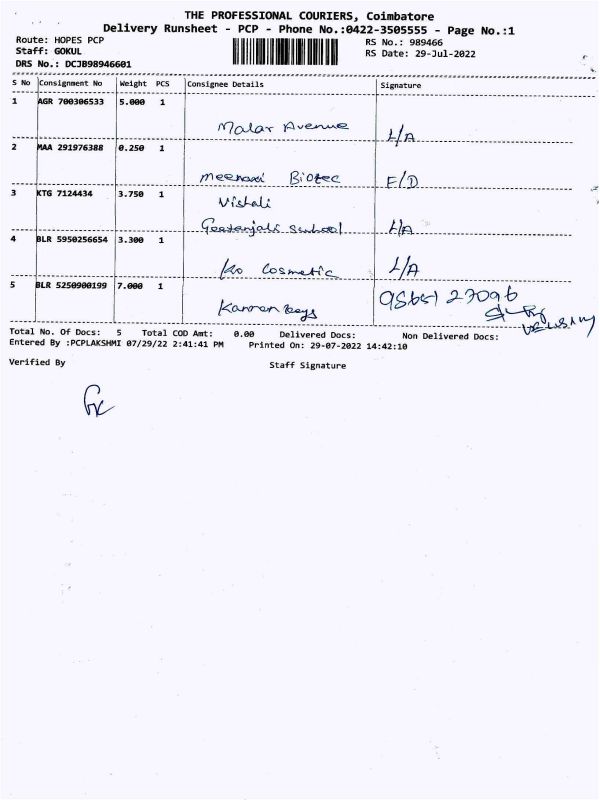 THE PROFESSIONAL COURIERS, Coimbatore
Delivery Runsheet - PCP - Phone No.:0422-3505555 - Page No.:1
Route: HOPES PCP
Staff: GOKUL
DRS No.: DCJB98946601
RS No.: 989466
RS Date: 29-Jul-2022
S No Consignment No Weight PCS Consignee Details Signature
1 AGR 700306533 5.000 1
Malar Avenue L/A
2 MAA 291976388 0.250 1
Biotec F/D
3 KTG 7124434 3.750 1 Vishali
Geetanjali School L/A
4 BLR 5950256654 3.300 1
Cosmetic L/A
5 BLR 5250900199 7.000 1
Kannan
Total No. Of Docs: 5 Total COD Amt: 0.00 Delivered Docs: Non Delivered Docs:
Entered By :PCPLAKSHMI 07/29/22 2:41:41 PM Printed On: 29-07-2022 14:42:10
Verified By Staff Signature